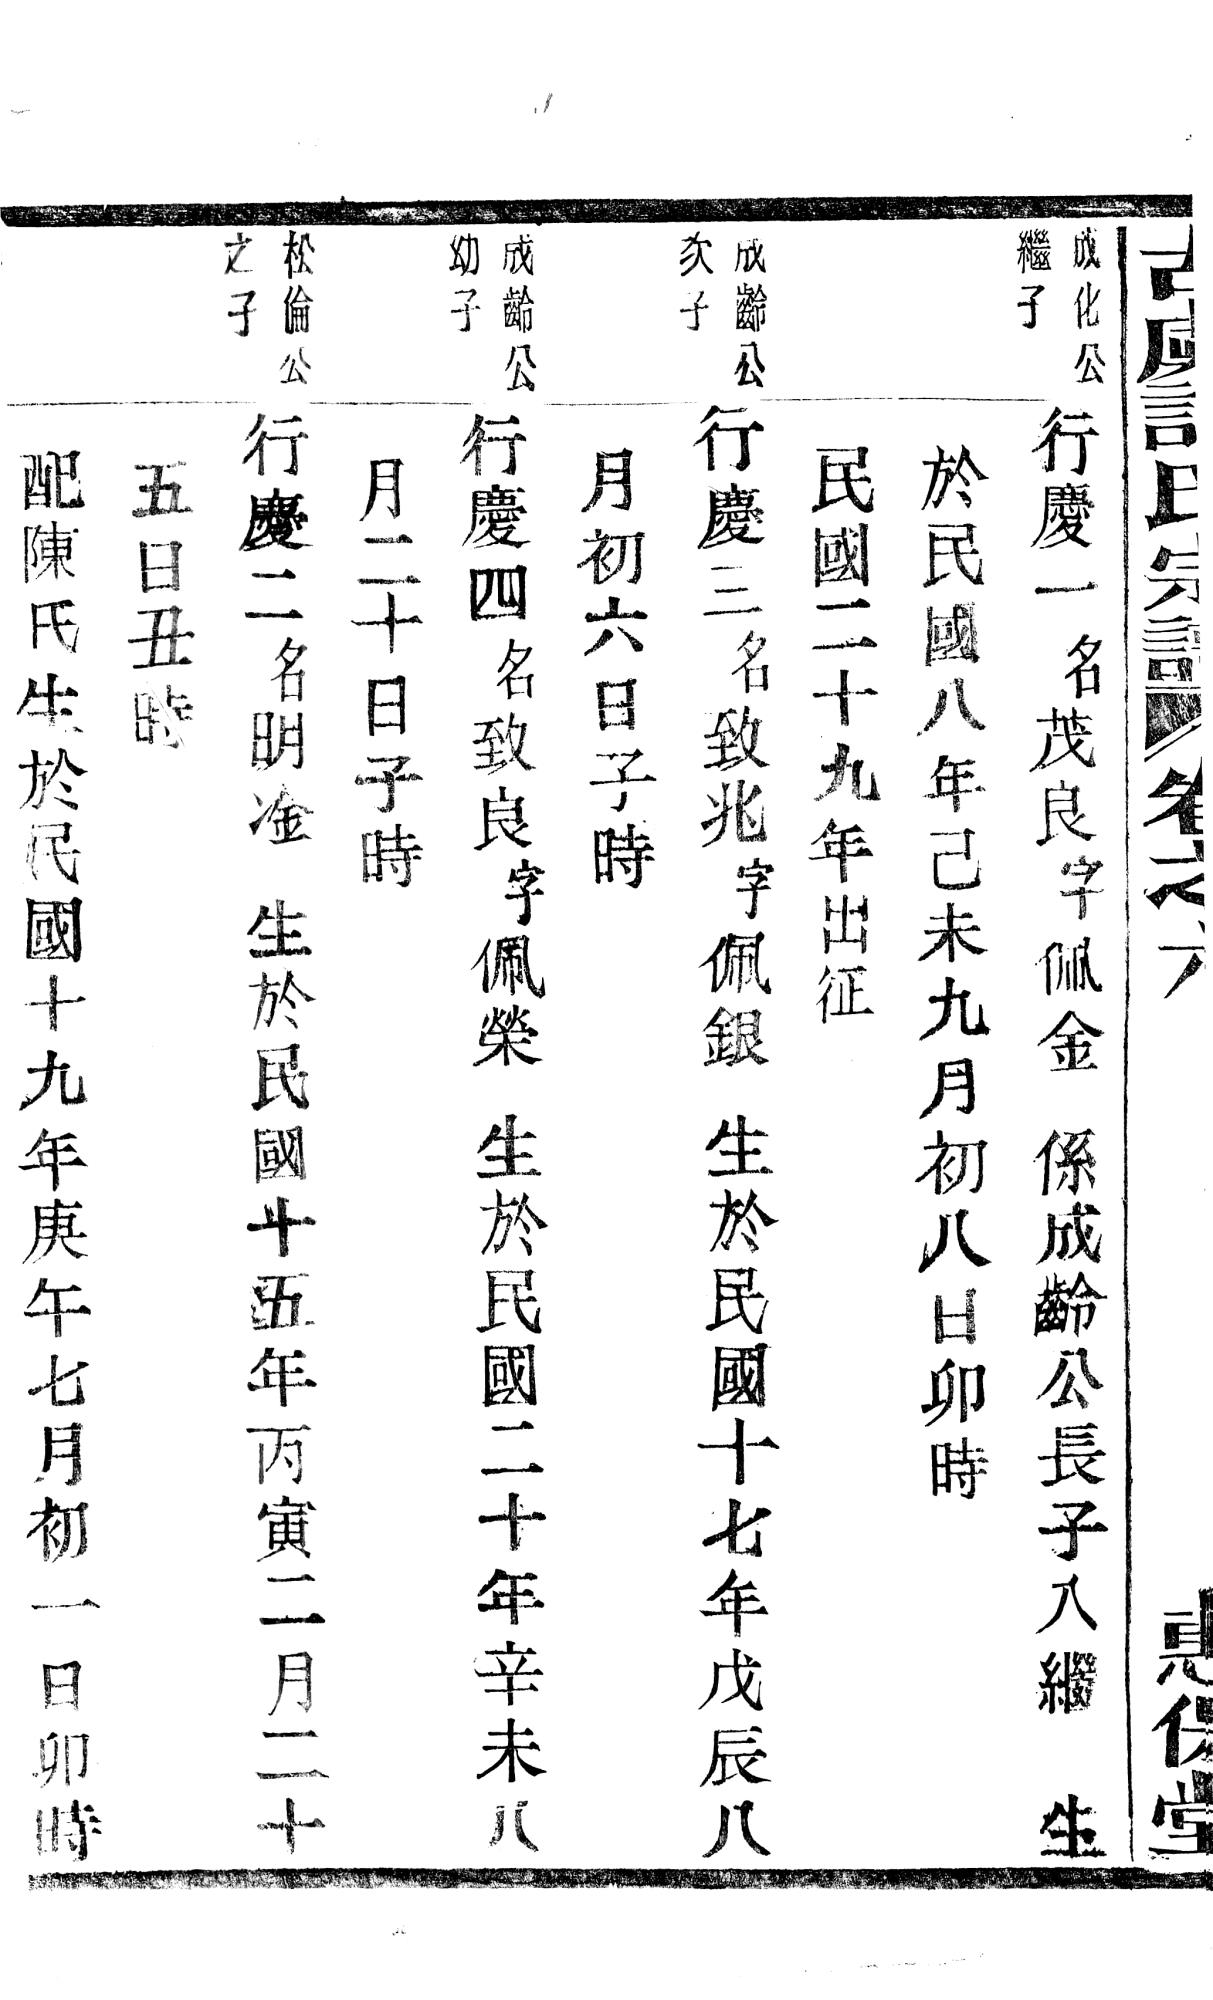 氏宗譜 卷之六
堂
成化公
繼子
行慶一名茂良字佩金 係成齡公長子入繼 生
於民國八年己未九月初八日卯時
民國二十九年出征
成齡公
次子
行慶三名致兆字佩銀 生於民國十七年戊辰八
月初六日子時
成齡公
幼子
行慶四名致良字佩榮 生於民國二十年辛未八
月二十日子時
松倫公
之子
行慶二名明淦 生於民國十五年丙寅二月二十
五日丑時
配陳氏生於民國十九年庚午七月初一日卯時